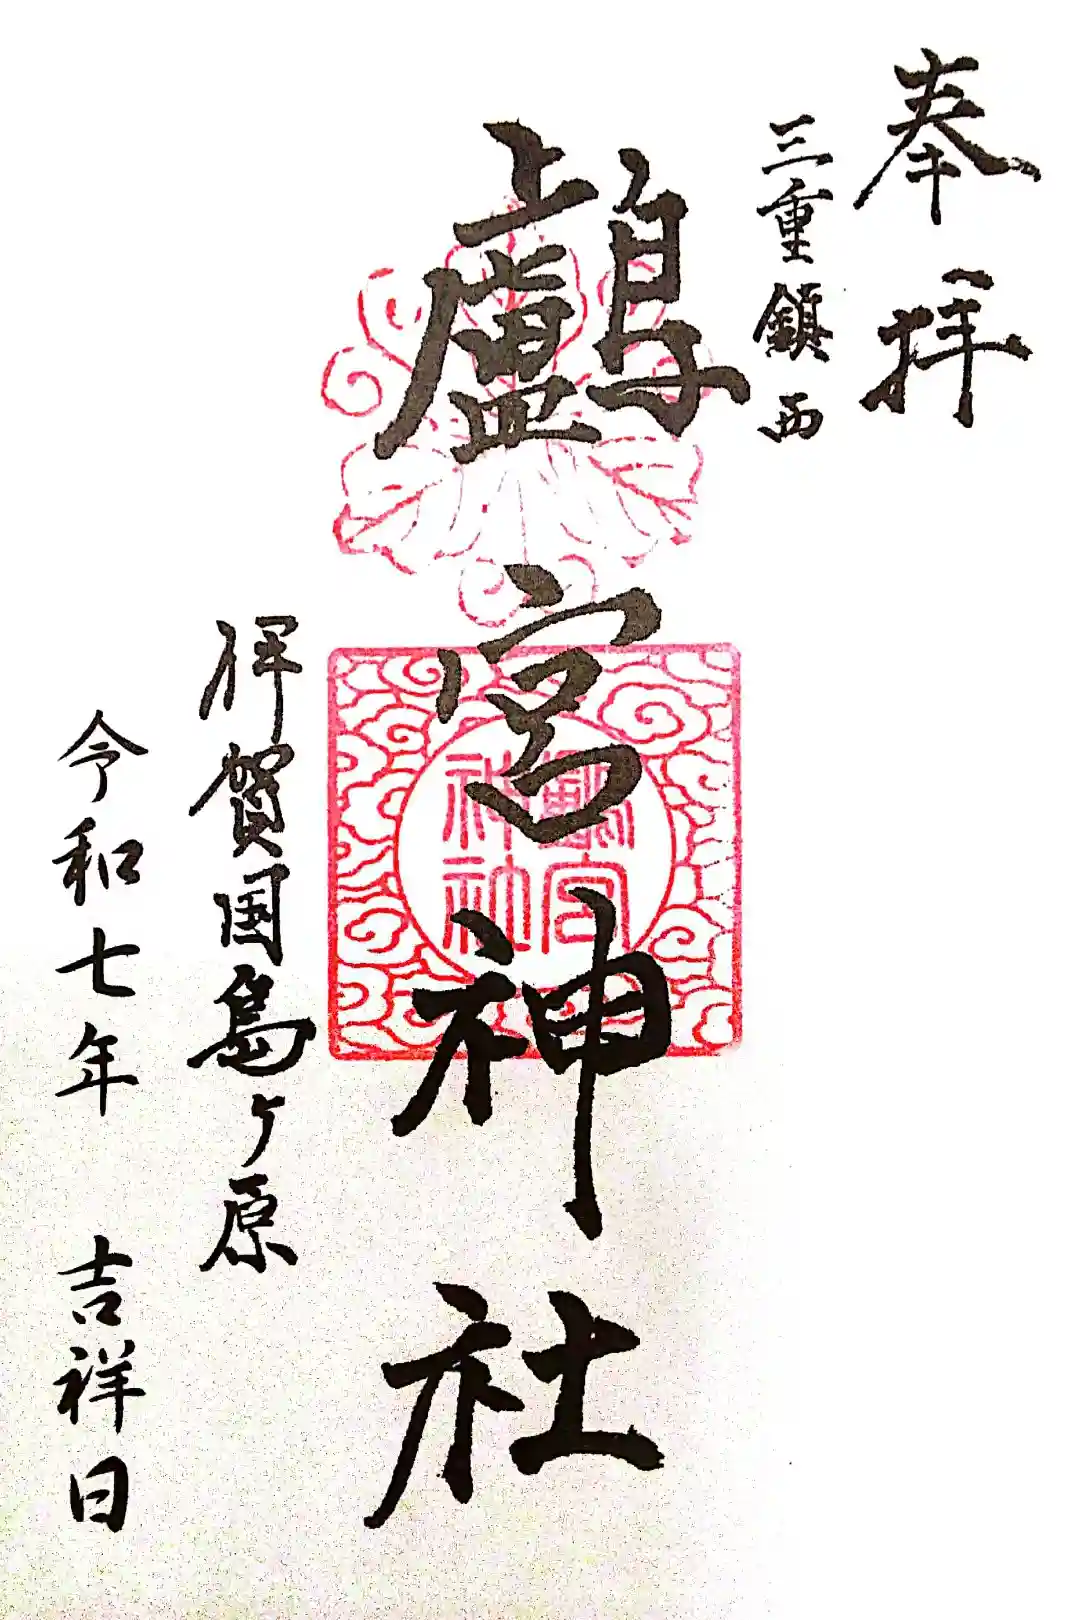 奉拝
三重鎮西
鸕宮神社
鸕宮神社
伊賀国島ヶ原
令和七年 吉祥日